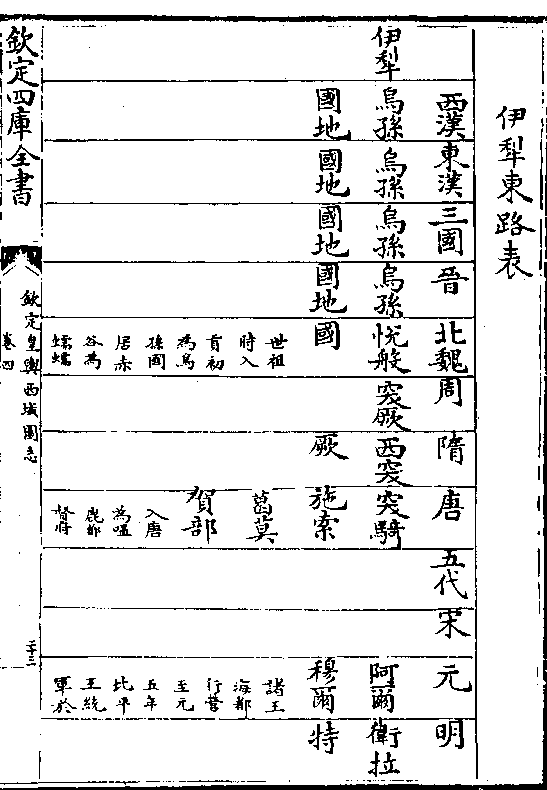 伊犂東路表
西漢
東漢
三國
晉
北魏
周
隋
唐
五代
宋
元
明
伊犂
烏孫
國地
烏孫
國地
烏孫
國地
烏孫
國地
悅般
國
世祖
時入
貢初
為烏
孫國
居赤
谷為
蠕蠕
突厥
西突
厥
突騎
施索
葛莫
賀部
入唐
為嗢
鹿都
督府
阿爾
穆爾
諸王
海都
行營
至元
五年
北平
王統
軍於
衛拉
特
欽定四庫全書
欽定皇輿西域圖志
卷四
二十三